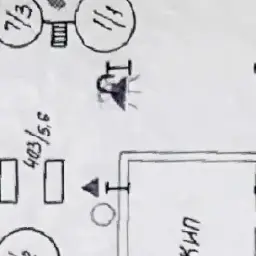 7/3
1/1
403/5,6
КИП